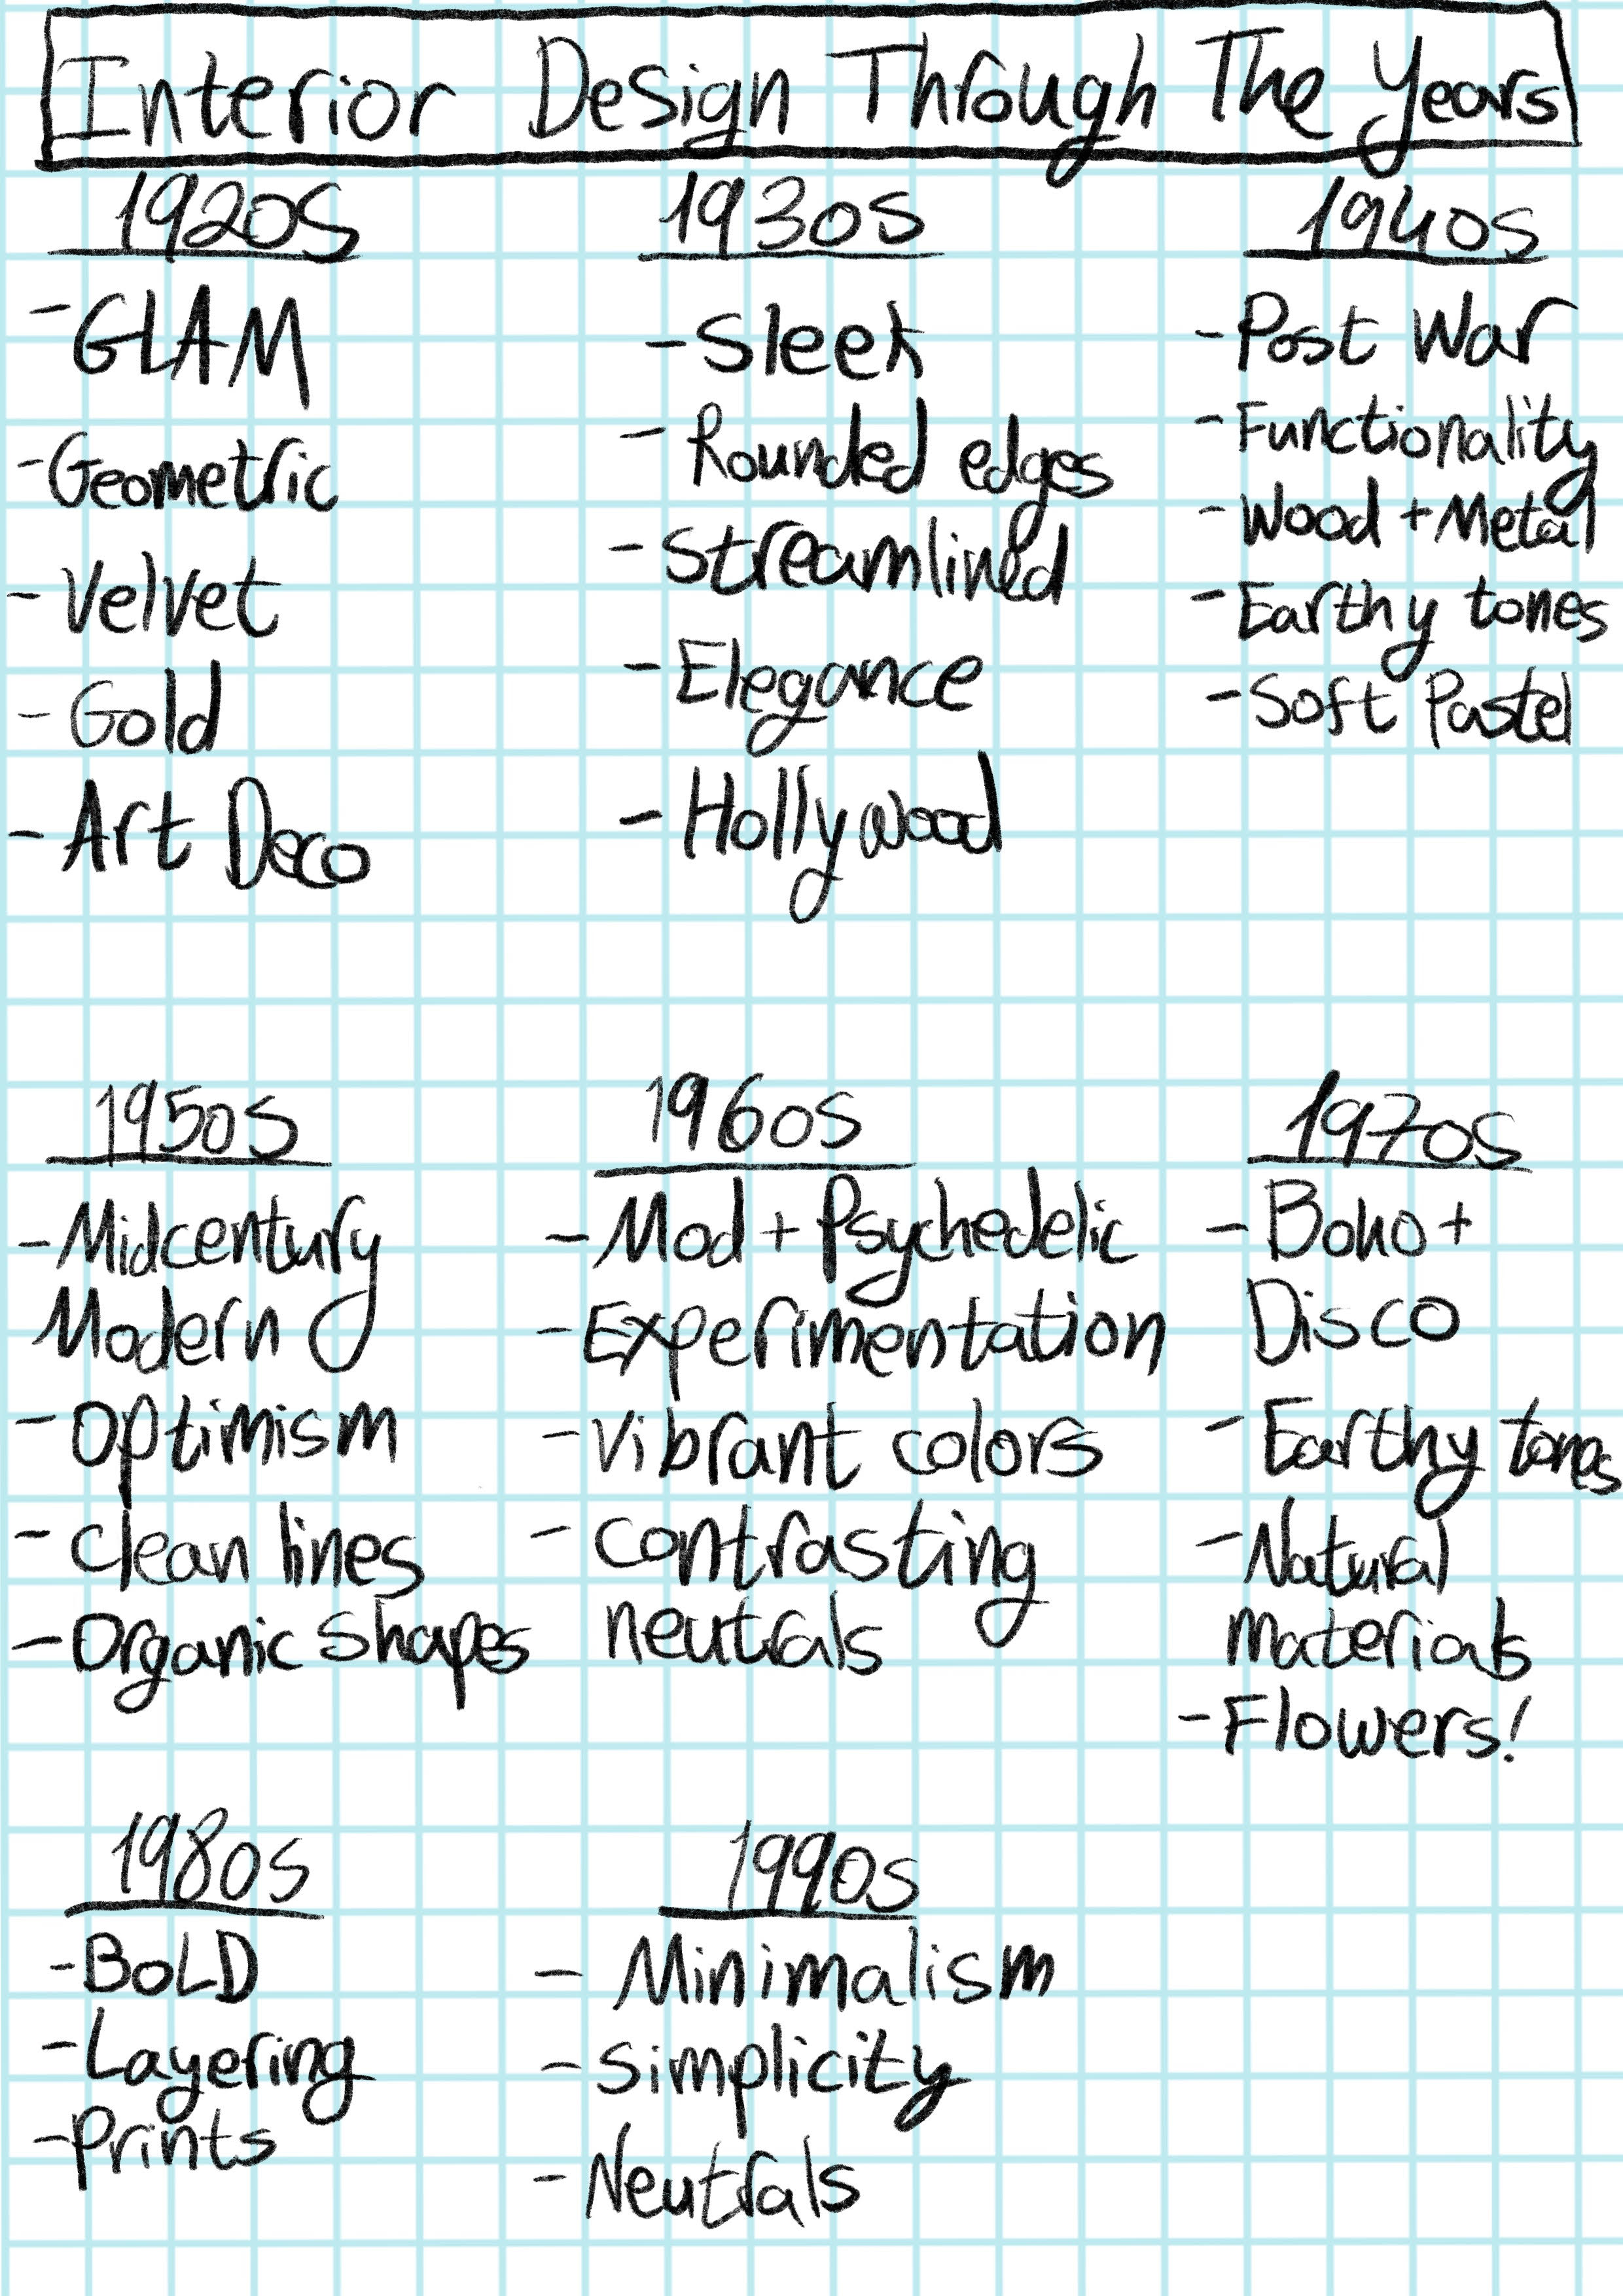 Interior Design Through The Years
1920s
- GLAM
- Geometric
- Velvet
- Gold
- Art Deco
1930s
- Sleek
- Rounded edges
- Streamlined
- Elegance
- Hollywood
1940s
- Post War
- Functionality
- Wood + Metal
- Earthy tones
- Soft Pastel
1950s
- Midcentury
Modern
- Optimism
- Clean lines
- Organic Shapes
1960s
- Mod + Psychedelic
- Experimentation
- Vibrant colors
- Contrasting
neutrals
1970s
- Boho +
Disco
- Earthy tones
- Natural
materials
- Flowers!
1980s
- BOLD
- Layering
- Prints
1990s
- Minimalism
- Simplicity
- Neutrals